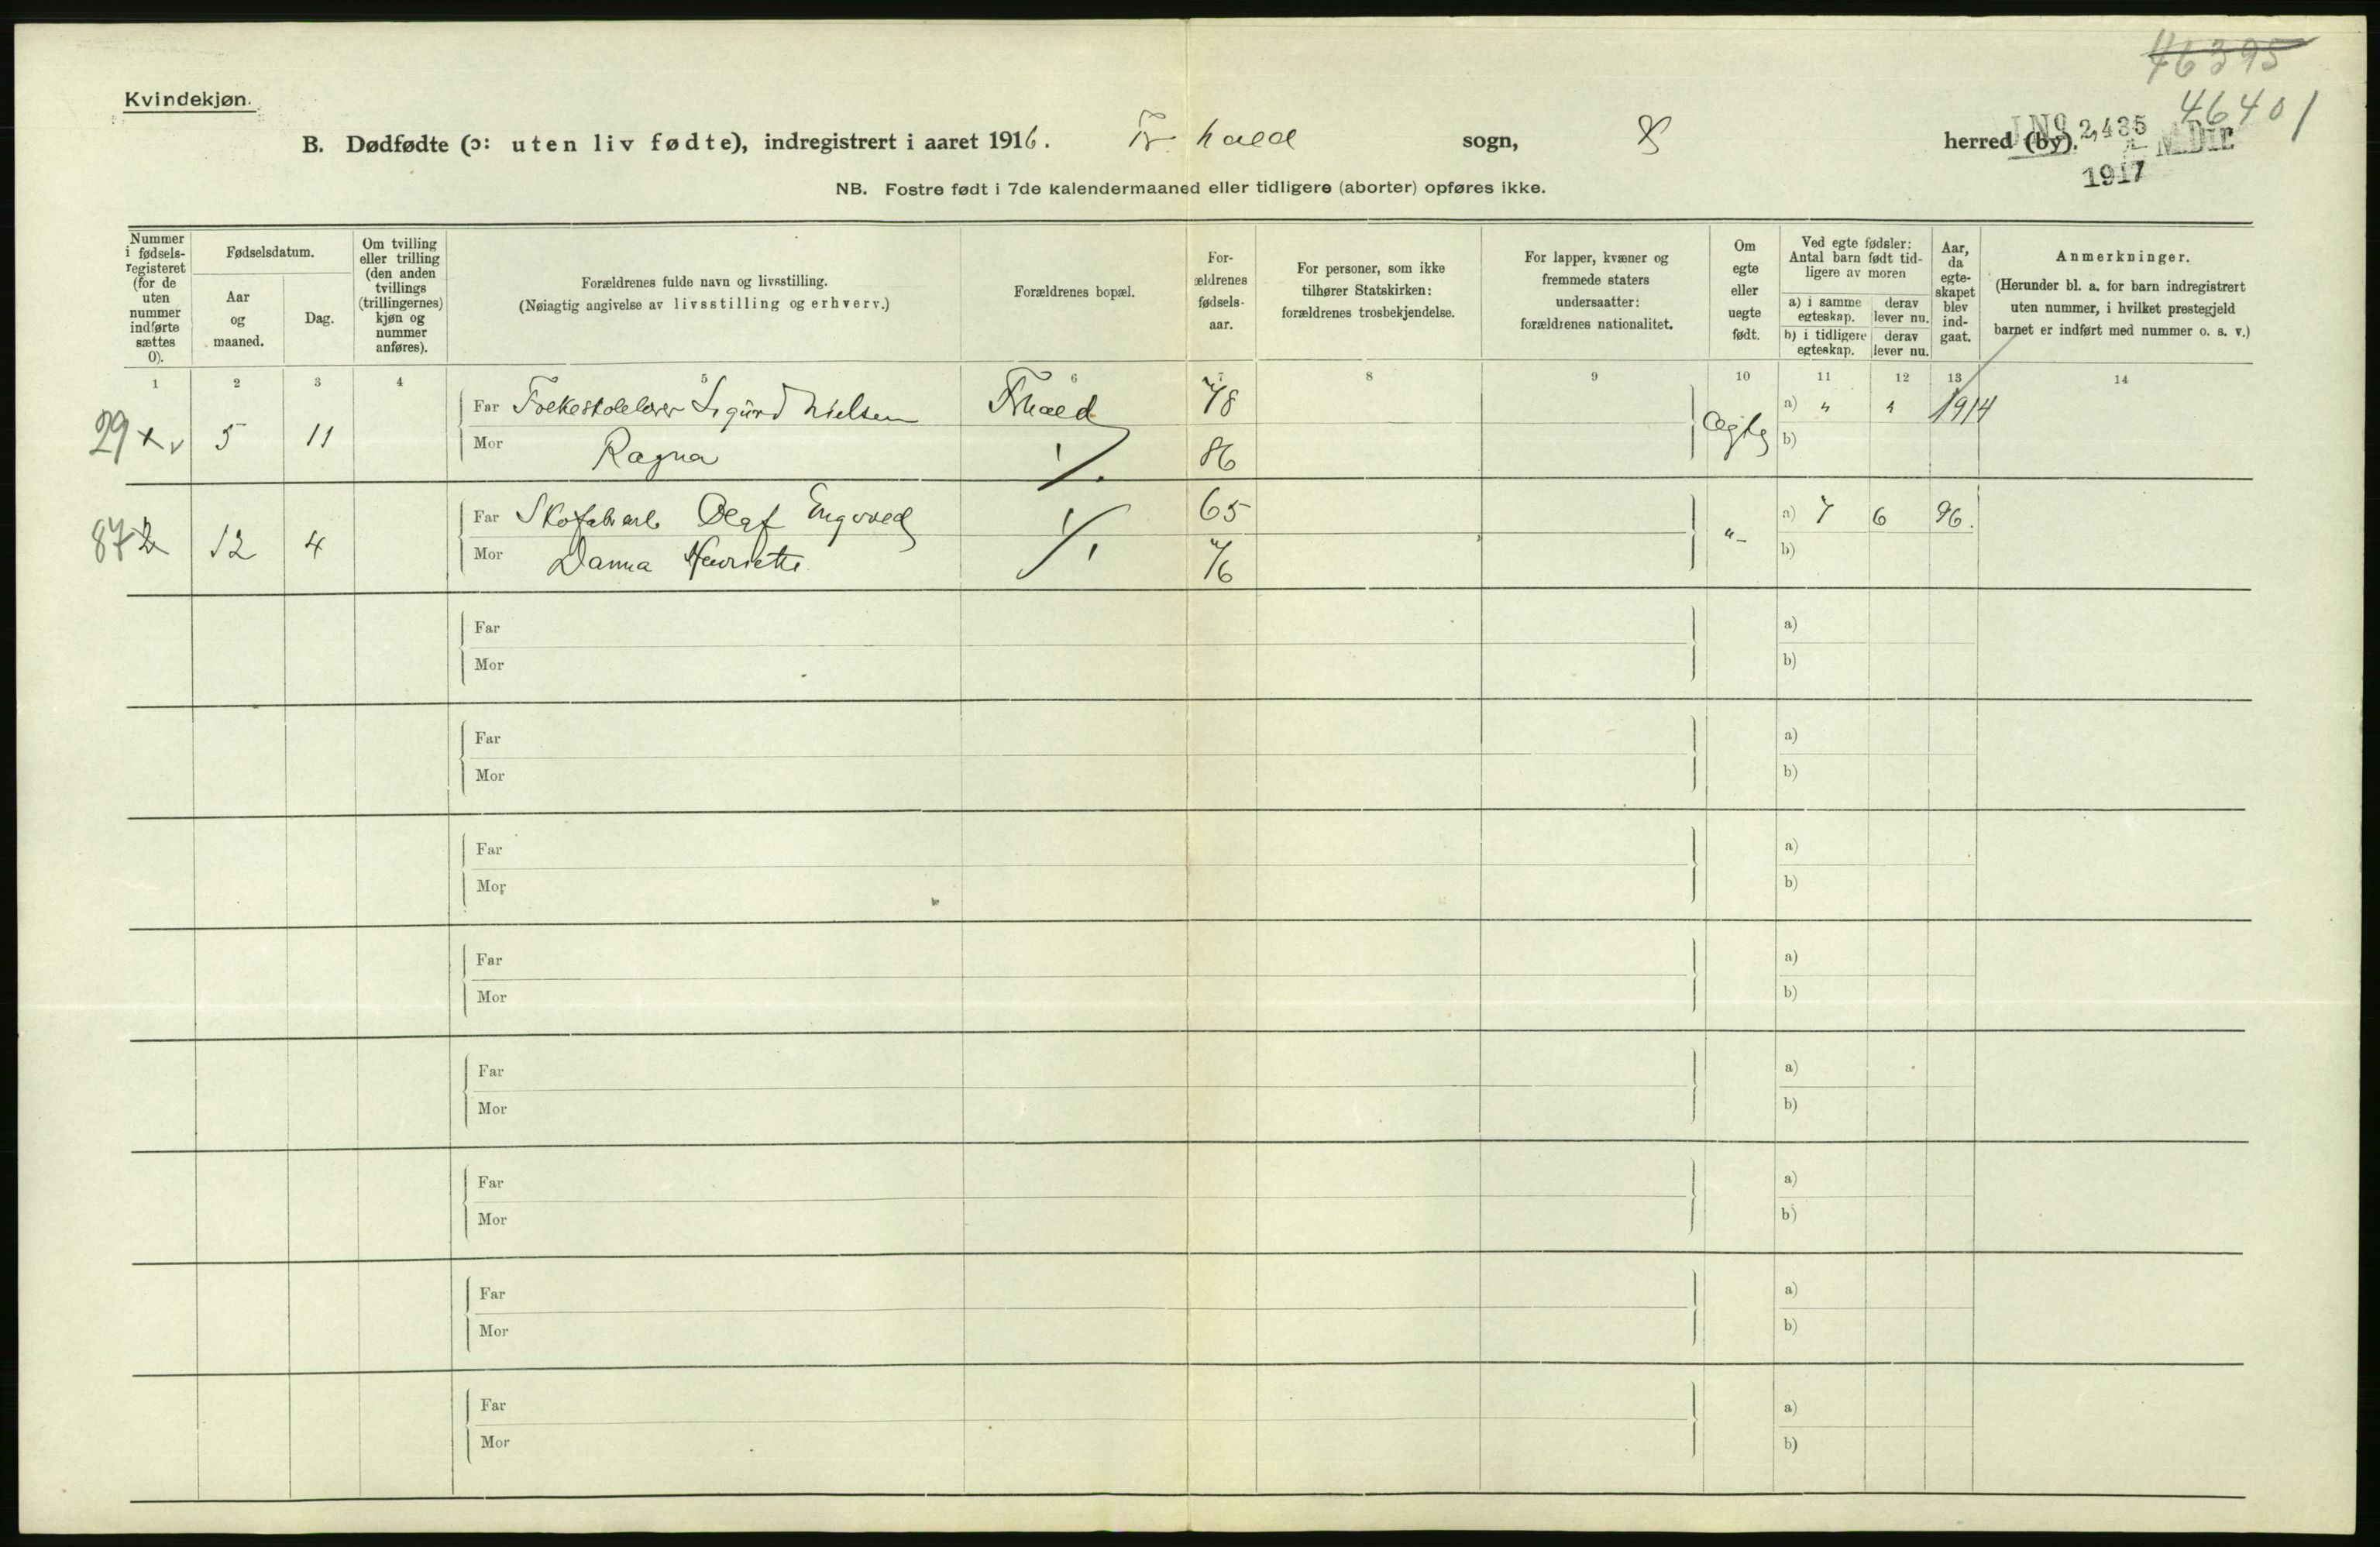 46395
46401
Kvindekjøn.
B. Dødfødte (ɔ: uten liv fødte), indregistrert i aaret 1916. Fr. hald sogn, herred (by).
J No 2,435 M.Dir.
1917
NB. Fostre født i 7de kalendermaaned eller tidligere (aborter) opføres ikke.
Nummer i fødsels-registeret (for de uten nummer indførte sættes 0).
Fødselsdatum.
Aar og maaned.
Dag.
Om tvilling eller trilling (den anden tvillings (trillingernes) kjøn og nummer anføres).
Forældrenes fulde navn og livsstilling.
(Nøiagtig angivelse av livsstilling og erhverv.)
Forældrenes bopæl.
For-ældrenes fødsels-aar.
For personer, som ikke tilhører Statskirken: forældrenes trosbekjendelse.
For lapper, kvæner og fremmede staters undersaatter: forældrenes nationalitet.
Om egte eller uegte født.
Ved egte fødsler: Antal barn født tid-ligere av moren
a) i samme egteskap.
derav lever nu.
b) i tidligere egteskap.
derav lever nu.
Aar, da egte-skapet blev ind-gaat.
Anmerkninger.
(Herunder bl. a. for barn indregistrert uten nummer, i hvilket prestegjeld barnet er indført med nummer o. s. v.)
1 2 3 4 5 6 7 8 9 10 11 12 13 14
29 5 11 Far Folkeskolelærer Sigurd Nielsen Fr.hald 78 Ægte a) " " 1914
Mor Ragna 86 b)
87 2 12 4 Far Skofabark Olaf Engvold 65 "- a) 7 6 96.
Mor Danna Henriette 76 b)
Far a)
Mor b)
Far a)
Mor b)
Far a)
Mor b)
Far a)
Mor b)
Far a)
Mor b)
Far a)
Mor b)
Far a)
Mor b)
Far a)
Mor b)